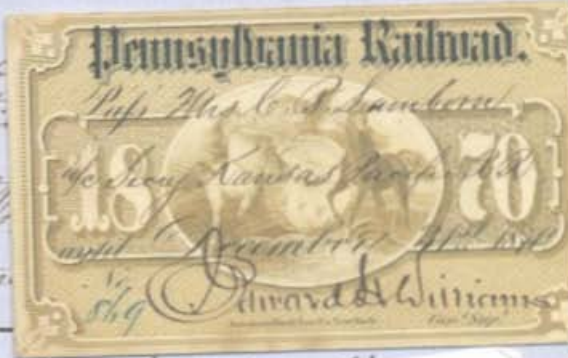 Pennsylvania Railroad.
Pass Mrs. C. B. Lamborn
a/c Secy Kansas Pacific R R
18 70
until December 31st 1870
No 869
Edward H. Williams
Gen'l Sup't